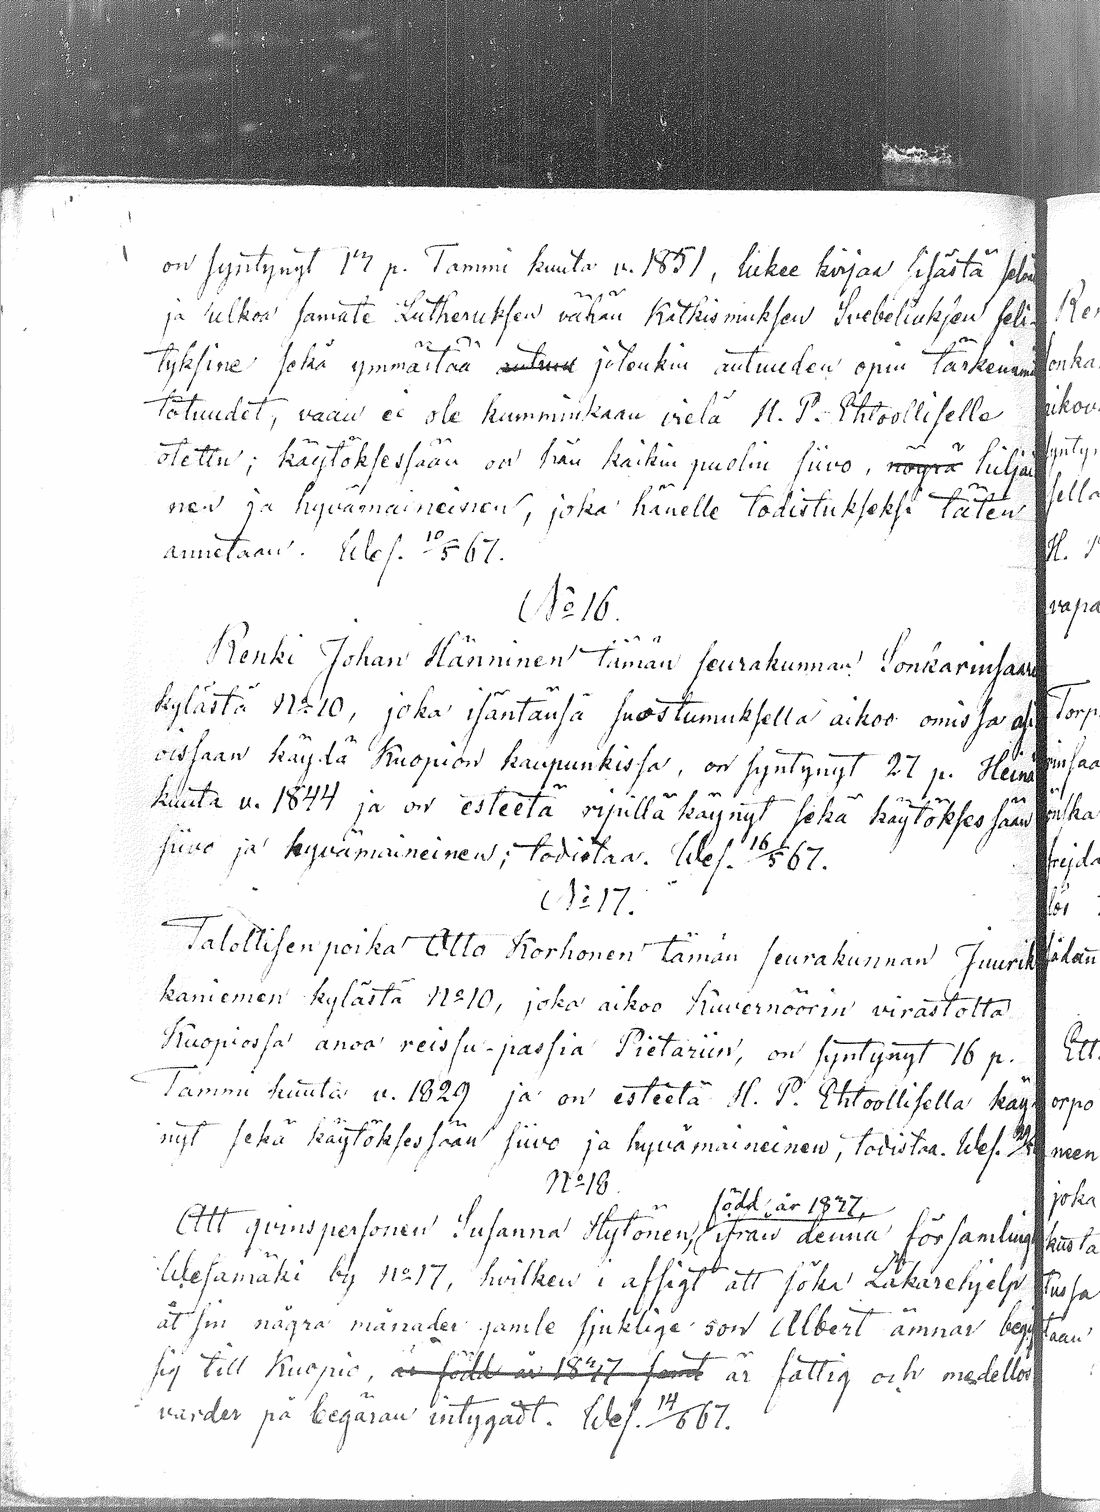 on syntynyt 17 p. Tammi kuuta v. 1851, lukee kirjaa sisästä selvä
ja ulkoa samate Lutheruksen vähän Katkismuksen Svebeliuksen seli-
tyksine sekä ymmärtää jotenkin autuuden opin tärkeimmä
totuudet, vaan ei ole kumminkaan vielä H. P. Ehtoolliselle
otettu; käytöksessään on hän kaikin puolin siivo, nöyrä hiljai
nen ja hyvämaineinen, joka hänelle todistukseksi täten
annetaan. Wes. 10/5 67.
No 16.
Renki Johan Hänninen tämän seurakunnan Sonkarinsaare
kylästä No 10, joka isäntänsä suostumuksella aikoo omissa asi
oissaan käydä Kuopion kaupunkissa, on syntynyt 27 p. Heinä
kuuta v. 1844 ja on esteetä ripillä käynyt sekä käytöksessään
siivo ja hyvämaineinen; todistaa. Wes. 16/5 67.
No 17.
Talollisen poika Otto Korhonen tämän seurakunnan Juurik
kaniemen kylästä No 10, joka aikoo Kuvernöörin virastolta
Kuopiossa anoa reissu-passia Pietariin, on syntynyt 16 p.
Tammi kuuta v. 1829 ja on esteetä H. P. Ehtoollisella käy-
nyt sekä käytöksessään siivo ja hyvämaineinen, todistaa. Wes.
No 18
född år 1827,
Att qvinspersonen Susanna Hytönen, ifrån denna församling
Wesamäki by No 17, hvilken i afsigt att söka Läkarehjelp
åt sin några månader gamle sjuklige son Albert ämnar begif
sig till Kuopio, är född år 1827 samt är fattig och medellös
varder på begäran intygadt. Wes. 14/6 67.
Ren
sonka
aikov
synty
sella
H. P
vapa
Torp
rinsaa
önska
frejda
lös
sådan
Ett
orpo
neen
joka
kusta
tussa
taan